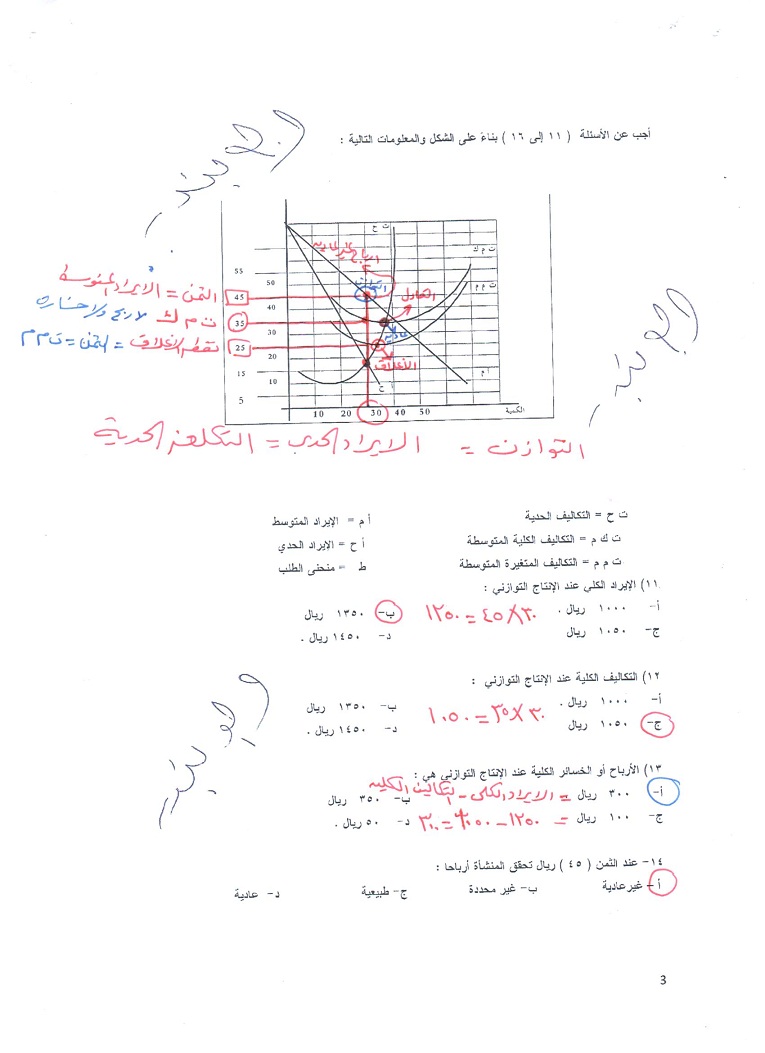 أجب عن الأسئلة ( ١١ إلى ١٦ ) بناءً على الشكل والمعلومات التالية :
ت ح
ارباح غير عادية
ت م ك
55
50
التوازن
ت م م
الثمن = الإيراد المتوسط
45
40
التعادل
ت م ك لا ربح ولا خسارة
35
30
عادية
نقطة الاغلاق = الثمن = ت م م
25
20
الأغلاق
15
أ م
10
أ ح
5
10 20 30 40 50
الكمية
التوازن = الايراد الحدي = التكلفة الحدية
ت ح = التكاليف الحدية
أ م = الإيراد المتوسط
ت ك م = التكاليف الكلية المتوسطة
أ ح = الإيراد الحدي
ت م م = التكاليف المتغيرة المتوسطة
ط = منحنى الطلب
١١) الإيراد الكلي عند الإنتاج التوازني :
أ- ١٠٠٠ ريال . ب- ١٣٥٠ ريال
٣٠ × ٤٥ = ١٢٥٠
ج- ١٠٥٠ ريال د- ١٤٥٠ ريال .
١٢) التكاليف الكلية عند الإنتاج التوازني :
أ- ١٠٠٠ ريال . ب- ١٣٥٠ ريال
٣٠ × ٣٥ = ١٠٥٠
ج- ١٠٥٠ ريال د- ١٤٥٠ ريال .
١٣) الأرباح أو الخسائر الكلية عند الإنتاج التوازني هي :
أ- ٣٠٠ ريال ب- ٣٥٠ ريال
= الايراد الكلي - التكاليف الكلية
ج- ١٠٠ ريال د- ٥٠ ريال .
= ١٢٥٠ - ١٠٥٠ = ٣٠٠
١٤- عند الثمن ( ٤٥ ) ريال تحقق المنشأة أرباحا :
أ- غير عادية ب- غير محددة ج- طبيعية د- عادية
3